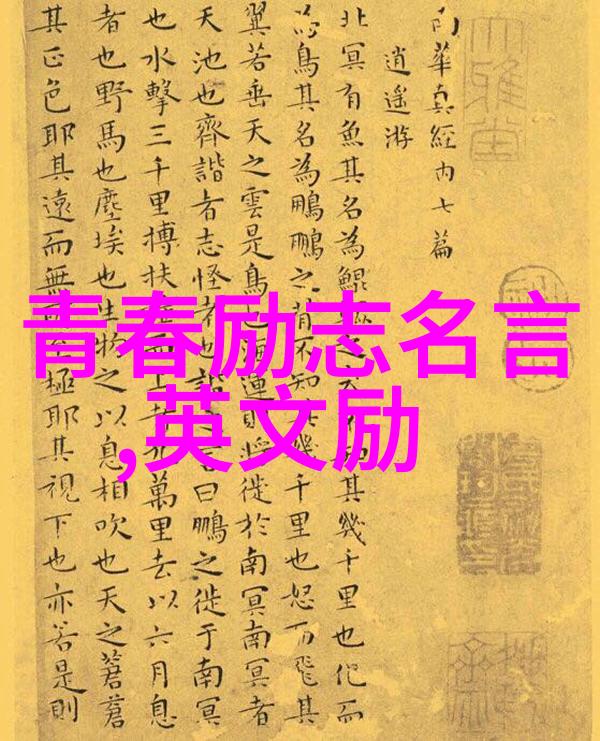 南華真經内七篇
逍遥游
北冥有魚其名為鯤其幾千里也化而
為鳥其名為鵬鵬之背不知其幾千里也怒而飛其
翼若垂天之雲是鳥也海運則將徙於南冥南冥者
天池也齊諧者志怪者也諧言曰鵬之徙于南冥
也水擊三千里摶扶而上者九萬里去以六月息
者也野馬也塵埃也生物之以息相吹也天之蒼蒼
其正色耶其遠而無至極耶其視下也亦若是則
青春励志名言
,英文励